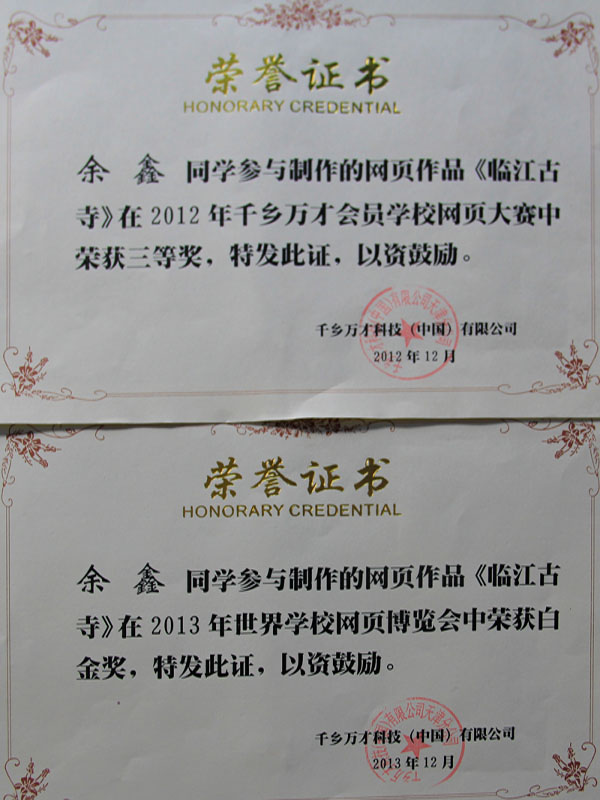 荣誉证书
HONORARY CREDENTIAL
余 鑫 同学参与制作的网页作品《临江古
寺》在 2012 年千乡万才会员学校网页大赛中
荣获三等奖，特发此证，以资鼓励。
千乡万才科技（中国）有限公司
2012 年 12 月
荣誉证书
HONORARY CREDENTIAL
余 鑫 同学参与制作的网页作品《临江古
寺》在 2013 年世界学校网页博览会中荣获白
金奖，特发此证，以资鼓励。
千乡万才科技（中国）有限公司
2013 年 12 月